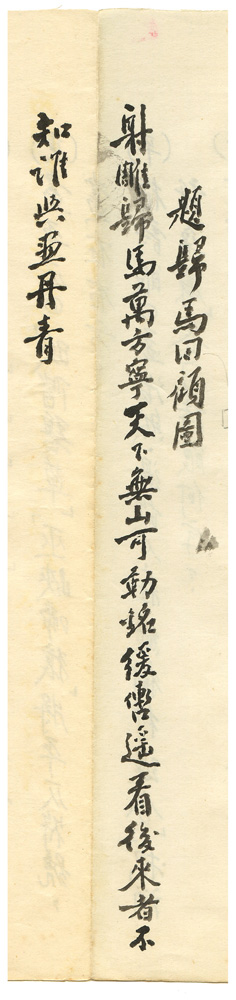 題歸馬回顧圖
射雕歸馬萬方寧天下無山可勒銘緩轡遥看後來者不
知誰與畫丹青